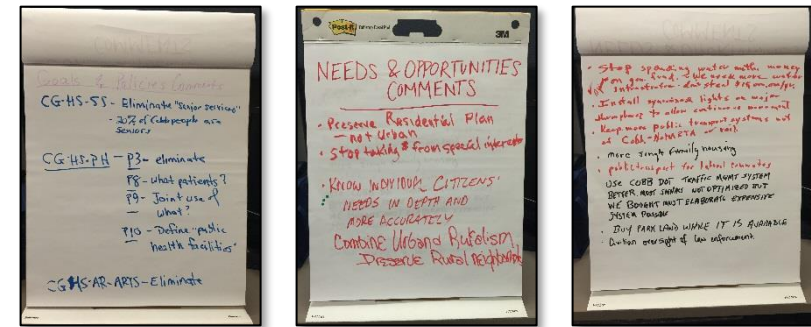 Goals & Policies Comments
CG-HS-SS - Eliminate "senior services"
- 20% of Cobb people are
seniors
CG-HS-PH - P3 - eliminate
P8 - what patients?
P9 - Joint use of
what?
P10 - Define "public
health facilities"
CG-HS-AR-ARTS - Eliminate
Post-it
3M
NEEDS & OPPORTUNITIES
COMMENTS
• Preserve Residential Plan
- not Urban
• Stop taking $ from special interests
• KNOW INDIVIDUAL CITIZENS'
NEEDS IN DEPTH AND
MORE ACCURATELY
Combine Urban & Ruralism
Preserve Rural neighborhoods
• Stop spending water auth. money
for gen. fund. We need more water
• Install synronized lights on major
thorofares to allow continuous movement
• Keep more public transport systems out
of Cobb - No MARTA rail
• More single family housing
• public transport for lateral commutes
USE COBB DOT TRAFFIC MGMT SYSTEM
BETTER. MOST SIGNALS NOT OPTIMIZED BUT
WE BOUGHT MOST ELABORATE EXPENSIVE
SYSTEM POSSIBLE
• BUY PARK LAND WHILE IT IS AVAILABLE
• Civilian oversight of law enforcement